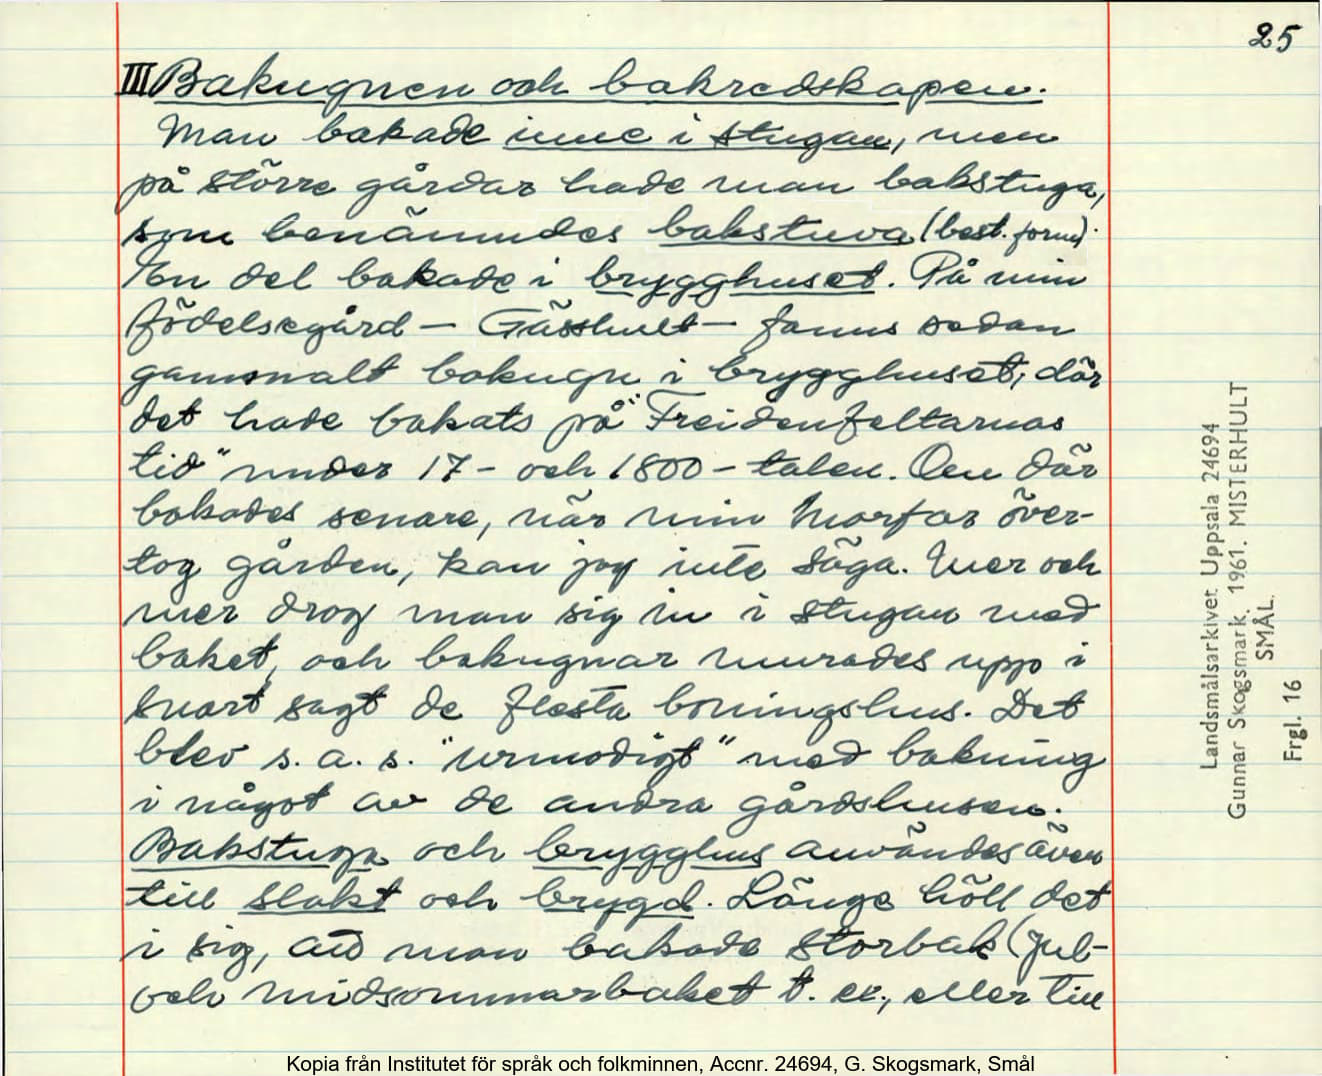 25
III Bakugnen och bakredskapen.
Man bakade inne i stugan, men
på större gårdar hade man bakstuga,
som benämndes bakstuva (best. form).
En del bakade i brygghuset. På min
födelsegård – Gässhult – fanns sedan
gammalt bakugn i brygghuset, där
det hade bakats på "Freidenfeltarnas
tid" under 17- och 1800-talen. Om där
bakades senare, när min morfar över-
tog gården, kan jag inte säga. Mer och
mer drog man sig in i stugan med
baket, och bakugnar murades upp i
snart sagt de flesta boningshus. Det
blev s. a. s. "urmodigt" med bakning
i något av de andra gårdshusen.
Bakstuga och brygghus användes även
till slakt och brygd. Länge höll det
i sig, att man bakade storbak (jul-
och midsommarbaket t. ex., eller till
Landsmålsarkivet Uppsala 24694
Gunnar Skogsmark 1961. MISTERHULT
SMÅL.
Frgl. 16
Kopia från Institutet för språk och folkminnen, Accnr. 24694, G. Skogsmark, Smål